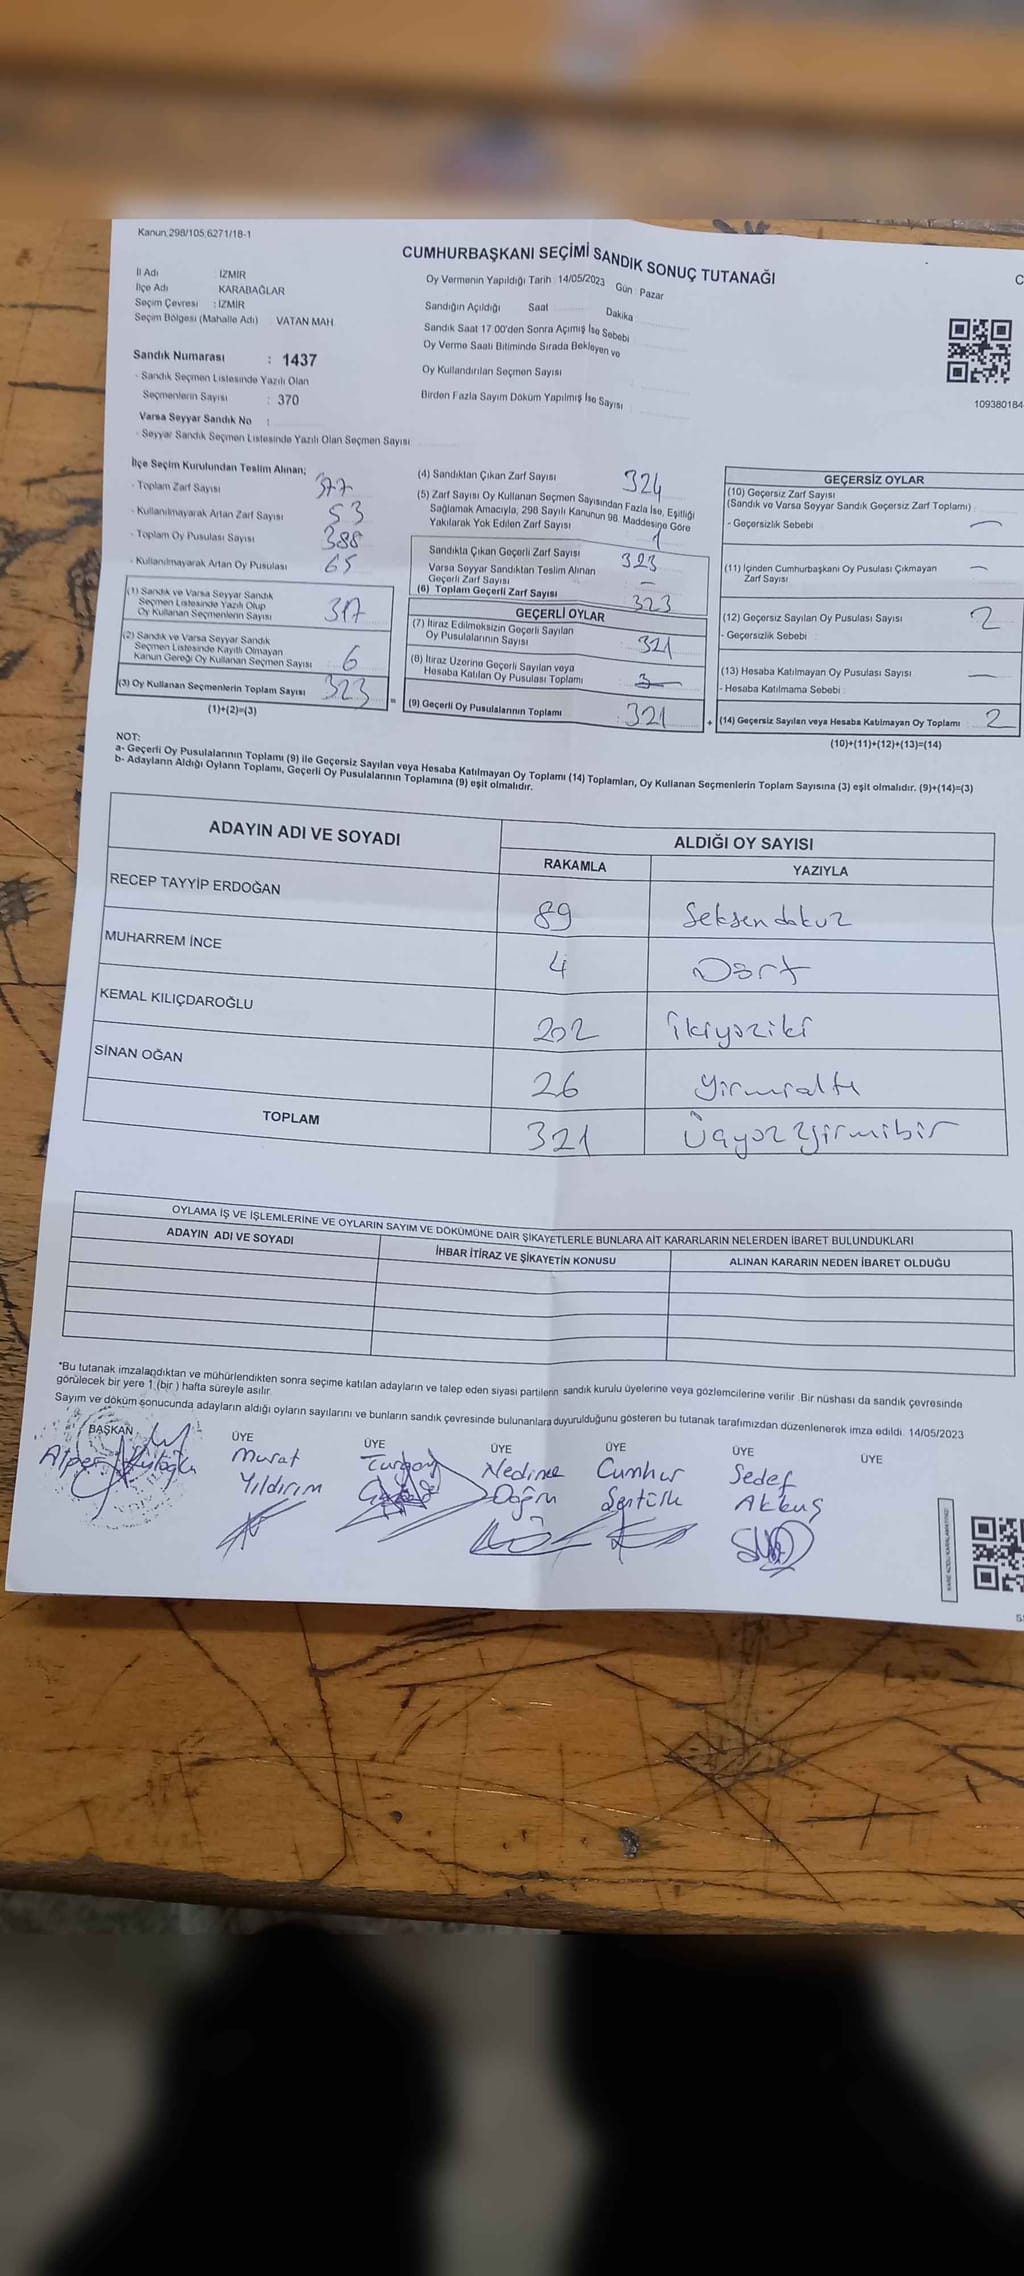 Kanun,298/105,6271/18-1
CUMHURBAŞKANI SEÇİMİ SANDIK SONUÇ TUTANAĞI
İl Adı İZMİR
İlçe Adı KARABAĞLAR
Seçim Çevresi : İZMİR
Seçim Bölgesi (Mahalle Adı) VATAN MAH
Oy Vermenin Yapıldığı Tarih 14/05/2023 Gün : Pazar
Sandığın Açıldığı Saat Dakika
Sandık Saat 17 00'den Sonra Açımış İse Sebebi
Oy Verme Saati Bitiminde Sırada Bekleyen ve
Oy Kullandırılan Seçmen Sayısı
Birden Fazla Sayım Döküm Yapılmış İse Sayısı
109380184
Sandık Numarası : 1437
- Sandık Seçmen Listesinde Yazılı Olan
Seçmenlerin Sayısı : 370
Varsa Seyyar Sandık No :
- Seyyar Sandık Seçmen Listesinde Yazılı Olan Seçmen Sayısı
İlçe Seçim Kurulundan Teslim Alınan;
- Toplam Zarf Sayısı 377
- Kullanılmayarak Artan Zarf Sayısı 53
- Toplam Oy Pusulası Sayısı 388
- Kullanılmayarak Artan Oy Pusulası 65
(1) Sandık ve Varsa Seyyar Sandık
Seçmen Listesinde Yazılı Olup
Oy Kullanan Seçmenlerin Sayısı 317
(2) Sandık ve Varsa Seyyar Sandık
Seçmen Listesinde Kayıtlı Olmayan
Kanun Gereği Oy Kullanan Seçmen Sayısı 6
(3) Oy Kullanan Seçmenlerin Toplam Sayısı 323
(1)+(2)=(3)
(4) Sandıktan Çıkan Zarf Sayısı 324
(5) Zarf Sayısı Oy Kullanan Seçmen Sayısından Fazla İse, Eşitliği
Sağlamak Amacıyla, 298 Sayılı Kanunun 98. Maddesine Göre
Yakılarak Yok Edilen Zarf Sayısı 1
Sandıkta Çıkan Geçerli Zarf Sayısı 323
Varsa Seyyar Sandıktan Teslim Alınan
Geçerli Zarf Sayısı –
(6) Toplam Geçerli Zarf Sayısı 323
GEÇERLİ OYLAR
(7) İtiraz Edilmeksizin Geçerli Sayılan
Oy Pusulalarının Sayısı 321
(8) İtiraz Üzerine Geçerli Sayılan veya
Hesaba Katılan Oy Pusulası Toplamı
= (9) Geçerli Oy Pusulalarının Toplamı 321 +
GEÇERSİZ OYLAR
(10) Geçersiz Zarf Sayısı
(Sandık ve Varsa Seyyar Sandık Geçersiz Zarf Toplamı) :
- Geçersizlik Sebebi –
(11) İçinden Cumhurbaşkanı Oy Pusulası Çıkmayan
Zarf Sayısı –
(12) Geçersiz Sayılan Oy Pusulası Sayısı 2
- Geçersizlik Sebebi
(13) Hesaba Katılmayan Oy Pusulası Sayısı –
- Hesaba Katılmama Sebebi
(14) Geçersiz Sayılan veya Hesaba Katılmayan Oy Toplamı 2
(10)+(11)+(12)+(13)=(14)
NOT:
a- Geçerli Oy Pusulalarının Toplamı (9) ile Geçersiz Sayılan veya Hesaba Katılmayan Oy Toplamı (14) Toplamları, Oy Kullanan Seçmenlerin Toplam Sayısına (3) eşit olmalıdır. (9)+(14)=(3)
b- Adayların Aldığı Oyların Toplamı, Geçerli Oy Pusulalarının Toplamına (9) eşit olmalıdır.
ADAYIN ADI VE SOYADI ALDIĞI OY SAYISI
RAKAMLA YAZIYLA
RECEP TAYYİP ERDOĞAN 89 Seksendokuz
MUHARREM İNCE 4 Dört
KEMAL KILIÇDAROĞLU 202 ikiyüziki
SİNAN OĞAN 26 yirmialtı
TOPLAM 321 Üçyüzyirmibir
OYLAMA İŞ VE İŞLEMLERİNE VE OYLARIN SAYIM VE DÖKÜMÜNE DAİR ŞİKAYETLERLE BUNLARA AİT KARARLARIN NELERDEN İBARET BULUNDUKLARI
ADAYIN ADI VE SOYADI İHBAR İTİRAZ VE ŞİKAYETİN KONUSU ALINAN KARARIN NEDEN İBARET OLDUĞU
*Bu tutanak imzalandıktan ve mühürlendikten sonra seçime katılan adayların ve talep eden siyasi partilerin sandık kurulu üyelerine veya gözlemcilerine verilir. Bir nüshası da sandık çevresinde
görülecek bir yere 1 (bir ) hafta süreyle asılır.
Sayım ve döküm sonucunda adayların aldığı oyların sayılarını ve bunların sandık çevresinde bulunanlara duyurulduğunu gösteren bu tutanak tarafımızdan düzenlenerek imza edildi. 14/05/2023
BAŞKAN ÜYE ÜYE ÜYE ÜYE ÜYE ÜYE
Alper Murat Turgay Nedime Cumhur Sedef
Yıldırım Doğru Şentürk Akkuş